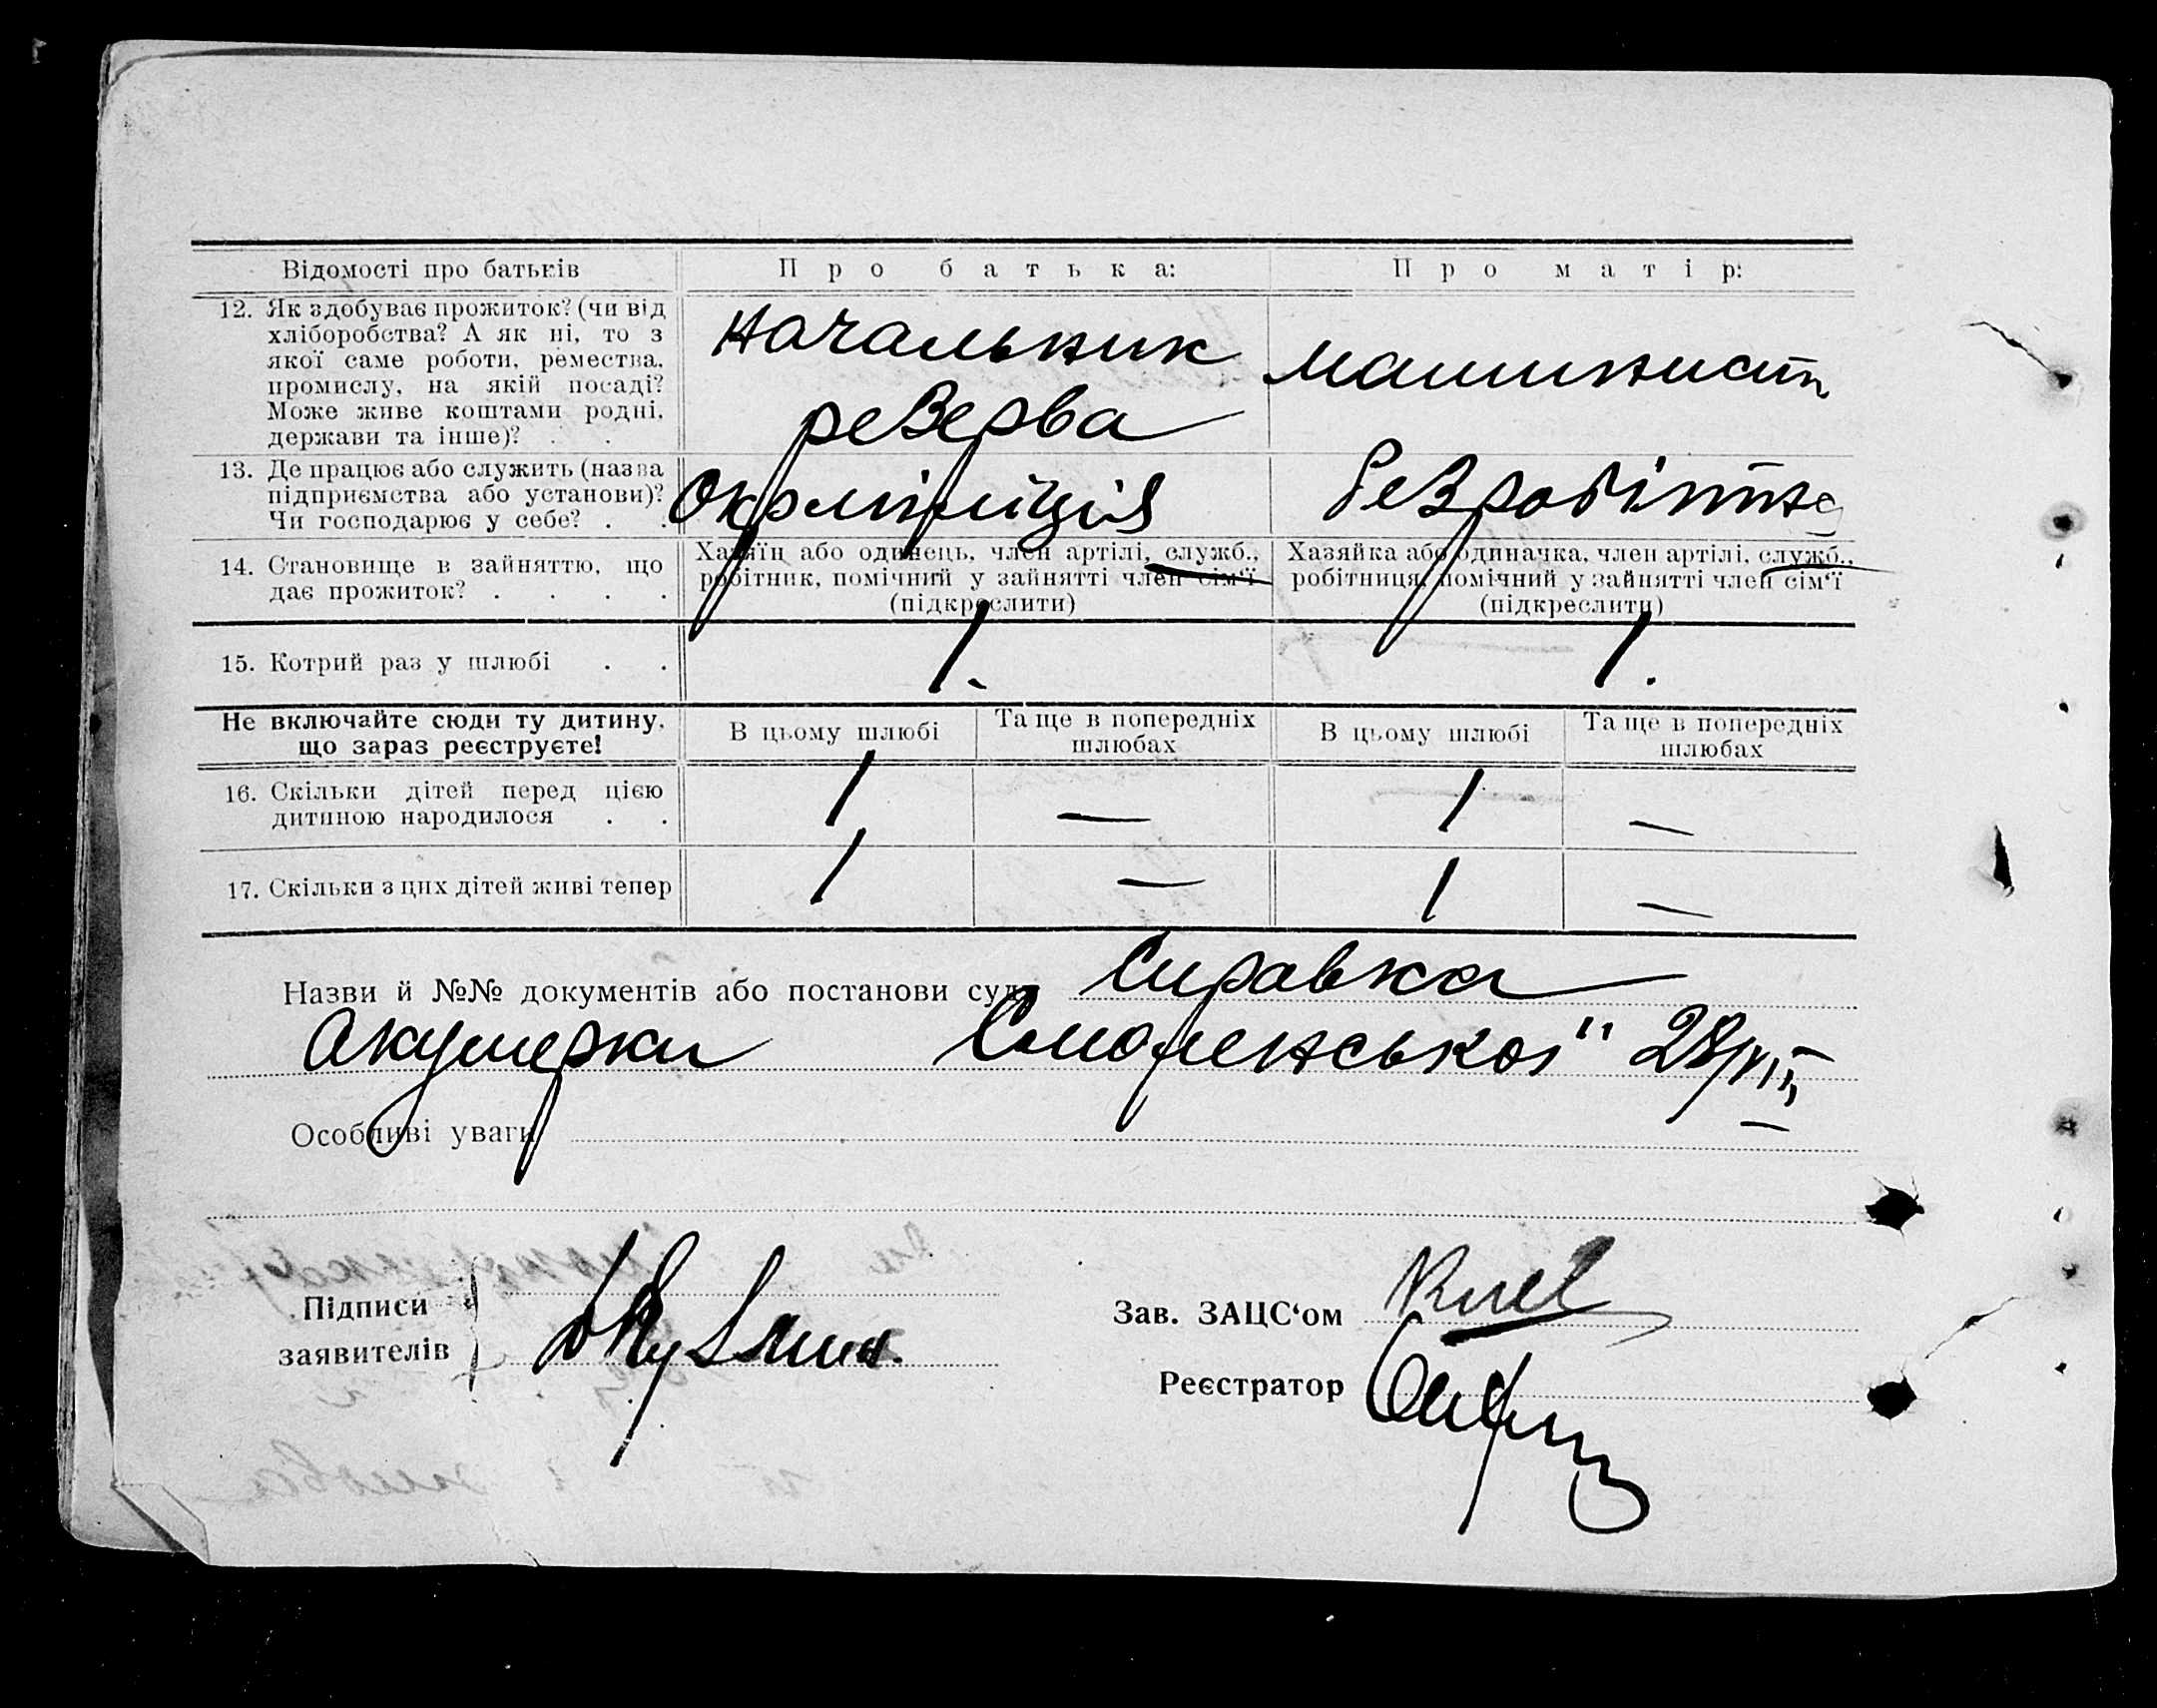 Відомості про батьків
Про батька:
Про матір:
12. Як здобуває прожиток? (чи від
хліборобства? А як ні, то з
якої саме роботи, ремества,
промислу, на якій посаді?
Може живе коштами родні,
держави та інше)? . .
Начальник
резерва
машинист
13. Де працює або служить (назва
підприємства або установи)?
Чи господарює у себе? . .
Окрміліція
безробітна
14. Становище в зайняттю, що
дає прожиток? . . . .
Хазяїн або одинець, член артілі, служб.,
робітник, помічний у зайнятті член сім‘ї
(підкреслити)
Хазяйка або одиначка, член артілі, служб.,
робітниця, помічний у зайнятті член сім‘ї
(підкреслити)
15. Котрий раз у шлюбі . .
1.
1.
Не включайте сюди ту дитину,
що зараз реєструєте!
В цьому шлюбі
Та ще в попередніх
шлюбах
В цьому шлюбі
Та ще в попередніх
шлюбах
16. Скільки дітей перед цією
дитиною народилося . .
1
—
1
—
17. Скільки з цих дітей живі тепер
1
—
1
—
Назви й №№ документів або постанови суду Справка
Акушерки 28/VIII
Особливі уваги
Підписи
заявителів
Зав. ЗАЦС‘ом
Реєстратор